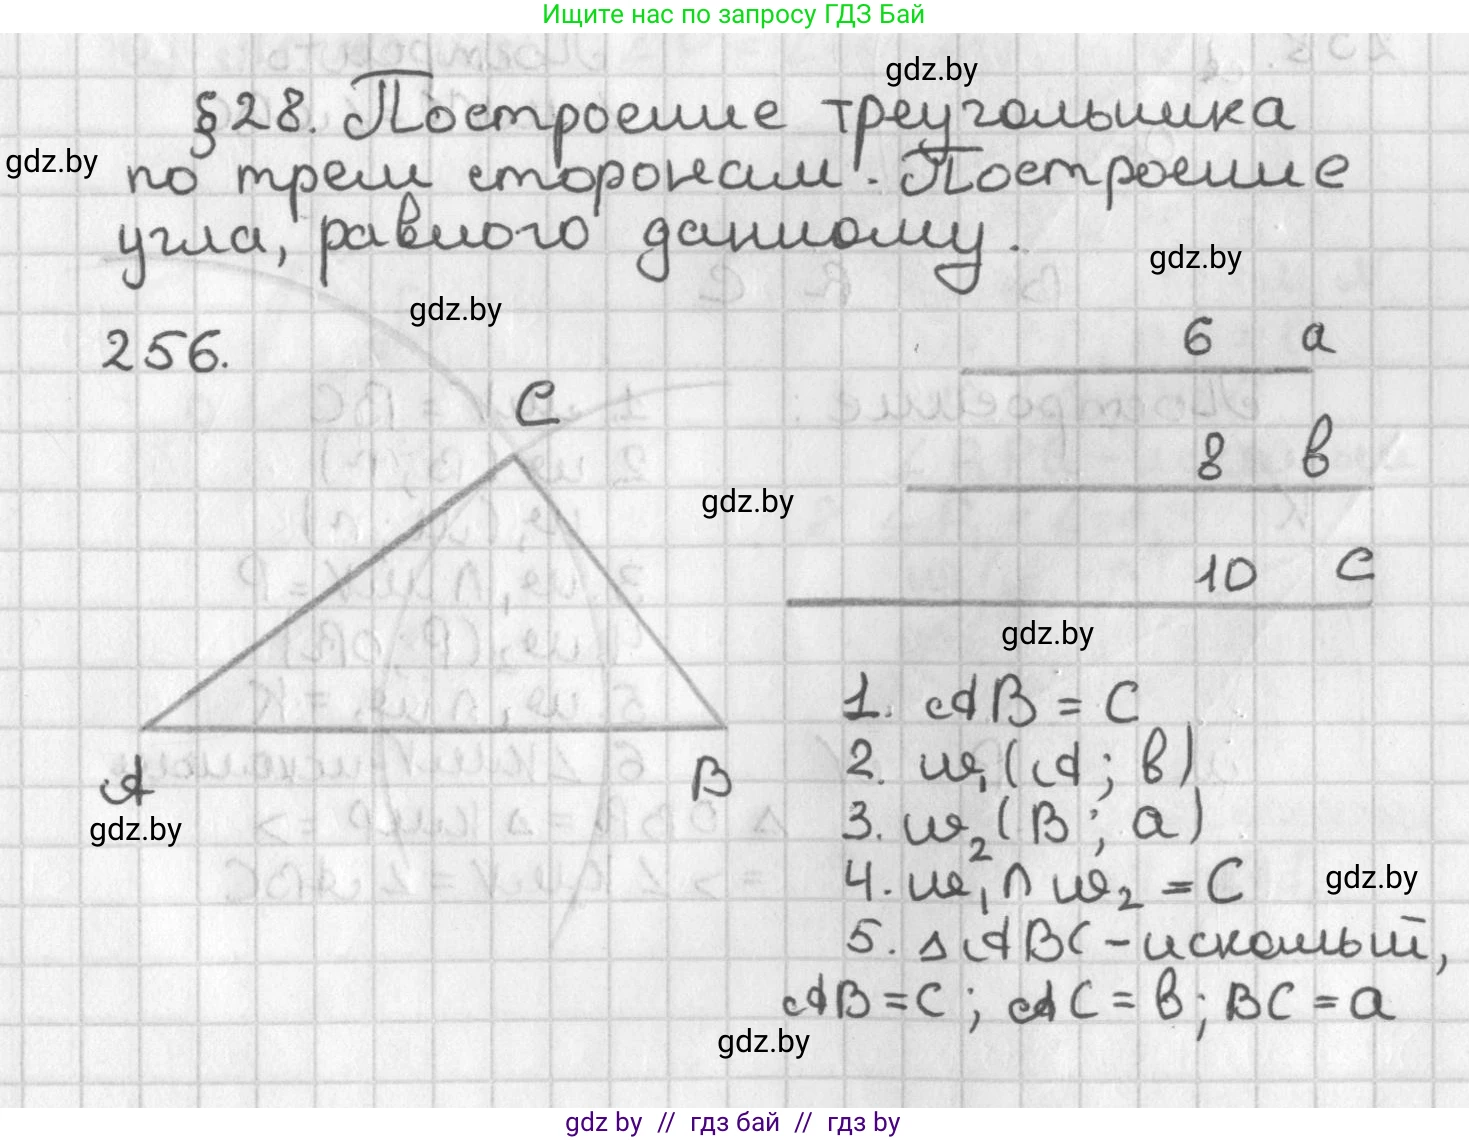 Ищите нас по запросу ГДЗ Бай
gdz.by
§28. Построение треугольника
gdz.by
по трем сторонам. Построение
угла, равного данному.
gdz.by
gdz.by
256.
6 a
C
8 b
gdz.by
10 c
gdz.by
A B
gdz.by
1. AB = C
2. ω₁(A; b)
3. ω₂(B; a)
4. ω₁ ∩ ω₂ = C
gdz.by
5. △ABC - искомый,
AB = C; AC = b; BC = a
gdz.by
gdz by // гдз бай // гдз by